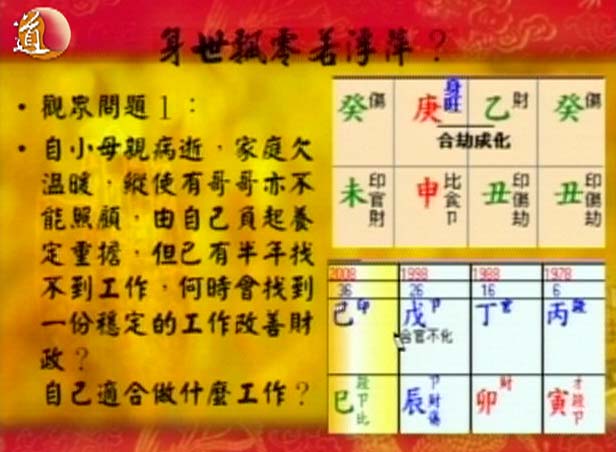 道
身世飄零若浮萍？
• 觀眾問題1：
• 自小母親病逝，家庭欠
溫暖，縱使有哥哥亦不
能照顧，由自己負起養
定重擔，但已有半年找
不到工作，何時會找到
一份穩定的工作改善財
政？
自己適合做什麼工作？
癸 傷 庚 身旺 乙 財 癸 傷
合劫成化
未 印官財 申 比食卩 丑 印傷劫 丑 印傷劫
2008 1998 1988 1978
36 26 16 6
己 印 戊 卩 丁 官 丙 殺
合官不化
巳 殺卩比 辰 卩財傷 卯 財 寅 才殺卩